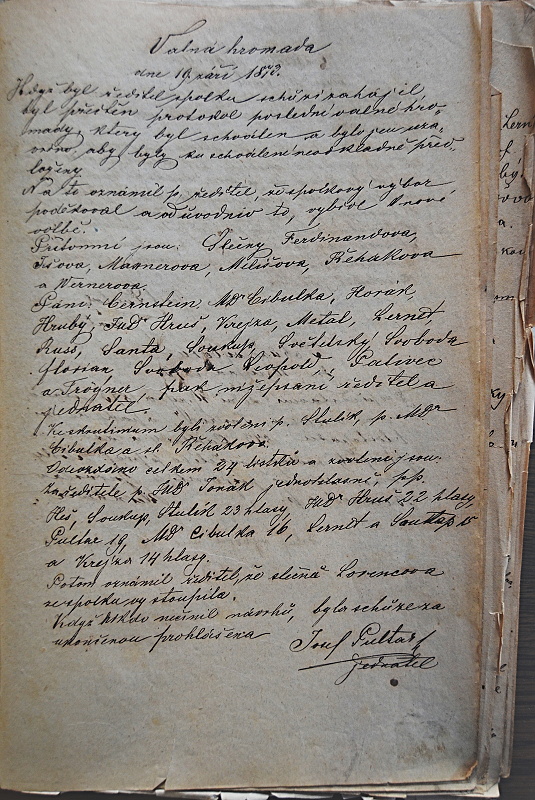 Valná hromada
dne 19. září 1873.
Když byl ředitel spolku schůzi zahájil,
byl přečten protokol poslední valné hro-
mady, který byl schválen a bylo jen uza-
vřeno, aby byly ku schválení neodkladně před-
loženy.
Na to oznámil p. ředitel, že spolkový výbor
poděkoval a odůvodniv to, vybízel k nové
volbě.
Přítomni jsou: Slečny Ferdinandova,
Tišova, Maznerova, Milišova, Řehákova
a Wernerova.
Páni: Bernstein MDr Cibulka, Horák,
Hrubý, JUDr Hruš, Krejza, Metal, Lernet
Russ, Santa, Soukup, Světelský, Svoboda
Florian Svoboda Leopold, Palivec
a Trögner pak nížepsaní ředitel a
jednatel.
Ke skrutinium byli zvoleni p. Stulík, p. MDr
Cibulka a sl. Řehákova.
Odevzdáno celkem 24 lístků a zvoleni jsou:
za ředitele p. JUDr Tonák jednohlasně, pp.
Heš, Soukup, Stulík 23 hlasy, JUDr Hruš 22 hlasy,
Pultar 19, MDr Cibulka 16, Lernet a 15
a Krejza 14 hlasy.
Potom oznámil ředitel, že slečna Lorencova
ze spolku vystoupila.
Když nikdo nečinil návrhů, byla schůze za
ukončenou prohlášena
Josef Pultar
jednatel